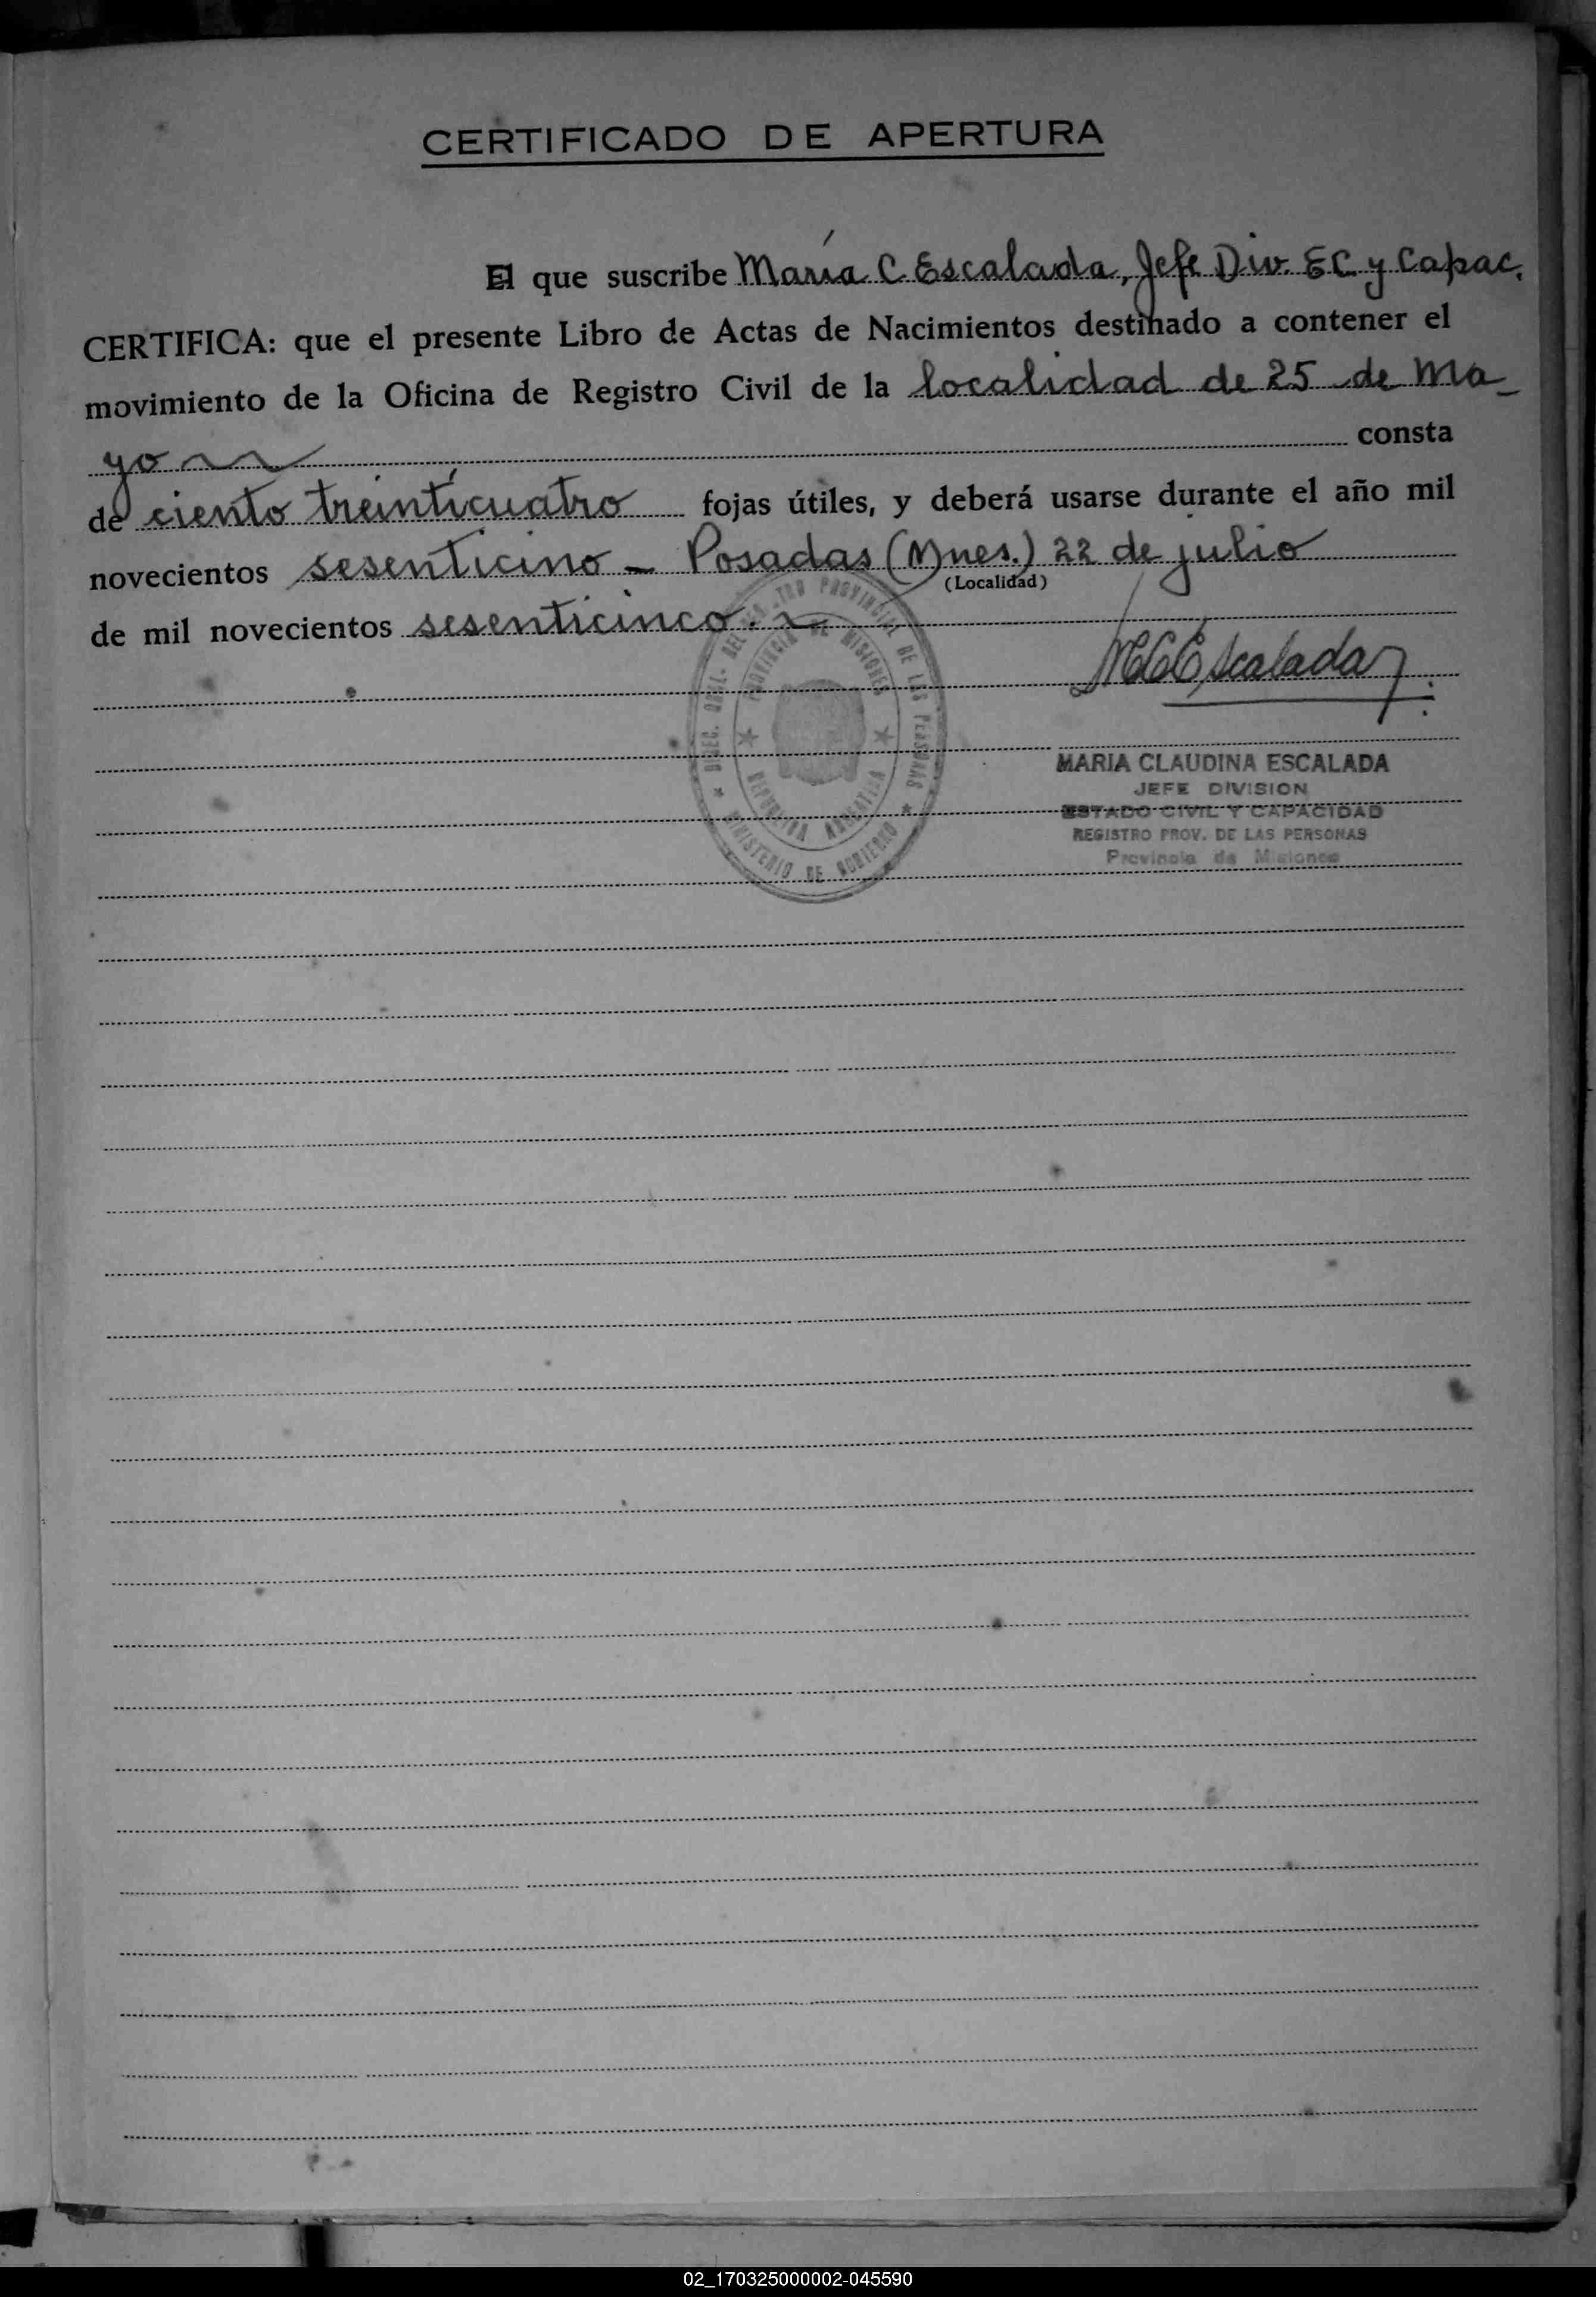 CERTIFICADO DE APERTURA
El que suscribe María C. Escalada, Jefe Div. EC y Capac.
CERTIFICA: que el presente Libro de Actas de Nacimientos destinado a contener el
movimiento de la Oficina de Registro Civil de la localidad de 25 de Ma-
yo consta
de ciento treinticuatro fojas útiles, y deberá usarse durante el año mil
novecientos sesenticino - Posadas (Mnes.) 22 de julio
(Localidad)
de mil novecientos sesenticinco.
MCEscalada
DIREC. GRAL. DEL REGISTRO PROVINCIAL DE LAS PERSONAS
PROVINCIA DE MISIONES
REPUBLICA ARGENTINA
MINISTERIO DE GOBIERNO
MARIA CLAUDINA ESCALADA
JEFE DIVISION
ESTADO CIVIL Y CAPACIDAD
REGISTRO PROV. DE LAS PERSONAS
Provincia de Misiones
02_170325000002-045590